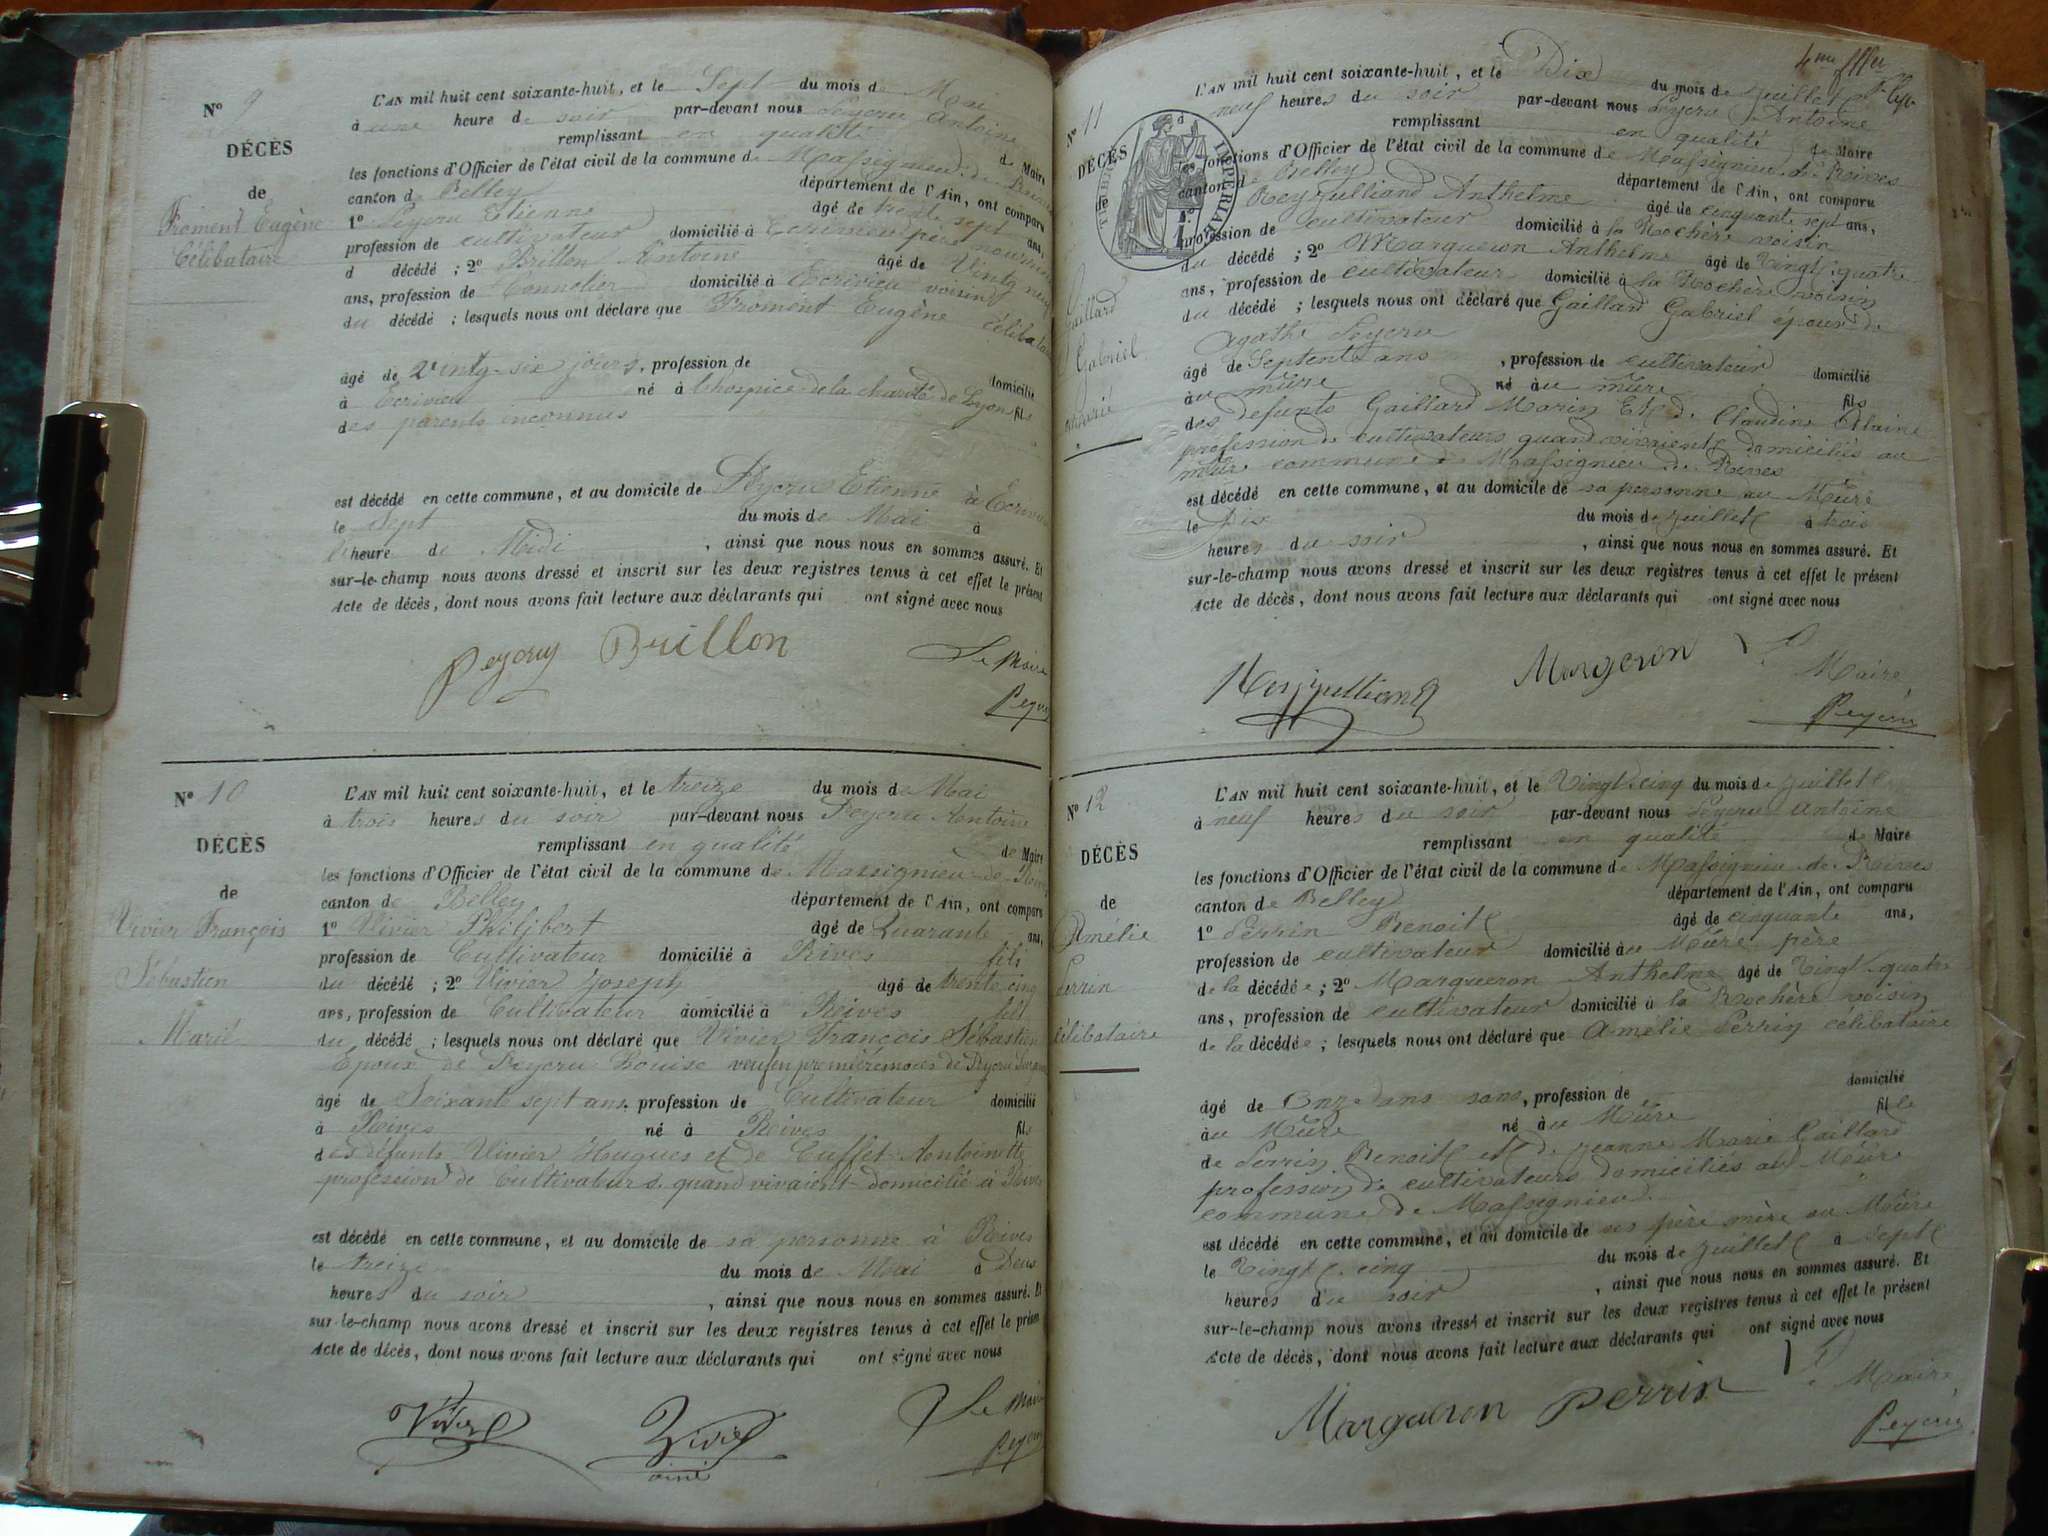 Nº 9
DÉCÈS
de
Froment Eugène
Célibataire
L'AN mil huit cent soixante-huit, et le Sept du mois de Mai
à une heure de soir par-devant nous Peycru Antoine
remplissant en qualité de Maire
les fonctions d'Officier de l'état civil de la commune de Massignieu de Rives
canton de Belley département de l'Ain, ont comparu
1º Peycru Etienne âgé de trente sept ans,
profession de cultivateur domicilié à Ecrivieu père nouricier
d décédé ; 2º Brillon Antoine âgé de Vingt neuf
ans, profession de Tonnelier domicilié à Ecrivieu voisin
du décédé ; lesquels nous ont déclaré que Froment Eugène célibataire
âgé de Vingt-six jours, profession de domicilié
à Ecrivieu né à l'hospice de la charité de Lyon fils
des parents inconnus
est décédé en cette commune, et au domicile de Peycru Etienne à Ecrivieu
le sept du mois de Mai à
l'heure de Midi , ainsi que nous nous en sommes assuré. Et
sur-le-champ nous avons dressé et inscrit sur les deux registres tenus à cet effet le présent
Acte de décès, dont nous avons fait lecture aux déclarants qui ont signé avec nous
Peycru Brillon Le Maire
Peycru
Nº 10
DÉCÈS
de
Vivier François
Sébastien
Marié
L'AN mil huit cent soixante-huit, et le treize du mois de Mai
à trois heures du soir par-devant nous Peycru Antoine
remplissant en qualité de Maire
les fonctions d'Officier de l'état civil de la commune de Massignieu-de-Rives
canton de Belley département de l'Ain, ont comparu
1º Vivier Philibert âgé de Quarante ans,
profession de Cultivateur domicilié à Rives fils
du décédé ; 2º Vivier Joseph âgé de trente cinq
ans, profession de Cultivateur domicilié à Rives fils
du décédé ; lesquels nous ont déclaré que Vivier François Sébastien
Epoux de Peycru Louise veuf en premières noces de Peycru
âgé de Soixante sept ans, profession de Cultivateur domicilié
à Rives né à Rives fils
des défunts Vivier Hugues et de Cuffet Antoinette
profession de Cultivateurs quand vivaient domicilié à Rives
est décédé en cette commune, et au domicile de sa personne à Rives
le treize du mois de Mai à Deux
heures du soir , ainsi que nous nous en sommes assuré. Et
sur-le-champ nous avons dressé et inscrit sur les deux registres tenus à cet effet le présent
Acte de décès, dont nous avons fait lecture aux déclarants qui ont signé avec nous
Vivier Vivier Le Maire
ainé Peycru
4me
Nº 11
DÉCÈS
de
Gaillard
Gabriel
marié
IMPÉRIAL
L'AN mil huit cent soixante-huit, et le Dix du mois de Juillet
à neuf heures du soir par-devant nous Peycru Antoine
remplissant en qualité de Maire
les fonctions d'Officier de l'état civil de la commune de Massignieu de Rives
canton de Belley département de l'Ain, ont comparu
1º Reyjulliand Anthelme âgé de cinquante sept ans,
profession de cultivateur domicilié à la Rochère voisin
du décédé ; 2º Margueron Anthelme âgé de Vingt-quatre
ans, profession de cultivateur domicilié à la Rochère voisin
du décédé ; lesquels nous ont déclaré que Gaillard Gabriel époux de
Agathe Peycru
âgé de Septente ans , profession de cultivateur domicilié
à au mûre né à au mûre fils
des defunts Gaillard Marin Et de Claudine
profession de cultivateurs quand vivaient domiciliés au
mûre commune de Massignieu de Rives
est décédé en cette commune, et au domicile de sa personne au Mûre
le Dix du mois de Juillet à trois
heures du soir , ainsi que nous nous en sommes assuré. Et
sur-le-champ nous avons dressé et inscrit sur les deux registres tenus à cet effet le présent
Acte de décès, dont nous avons fait lecture aux déclarants qui ont signé avec nous
Reyjulliand Margeron Le Maire
Peycru
Nº 12
DÉCÈS
de
Amélie
Perrin
célibataire
L'AN mil huit cent soixante-huit, et le Vingt cinq du mois de Juillet
à neuf heures du soir par-devant nous Peycru Antoine
remplissant en qualité de Maire
les fonctions d'Officier de l'état civil de la commune de Massignieu de Rives
canton de Belley département de l'Ain, ont comparu
1º Perrin Benoit âgé de cinquante ans,
profession de cultivateur domicilié à au Mûre père
de la décédée ; 2º Margueron Anthelme âgé de Vingt-quatre
ans, profession de cultivateur domicilié à la Rochère voisin
de la décédée ; lesquels nous ont déclaré que Amélie Perrin célibataire
âgé de Onze ans sans, profession de domicilié
à au Mûre né à au Mûre fille
de Perrin Benoit et d. Jeanne Marie Gaillard
profession de cultivateurs domiciliés au Mûre
commune de Massignieu d.
est décédé en cette commune, et au domicile de ses père mère au Mûre
le Vingt cinq du mois de Juillet à sept
heures du soir , ainsi que nous nous en sommes assuré. Et
sur-le-champ nous avons dressé et inscrit sur les deux registres tenus à cet effet le présent
Acte de décès, dont nous avons fait lecture aux déclarants qui ont signé avec nous
Margueron Perrin Le Maire
Peycru